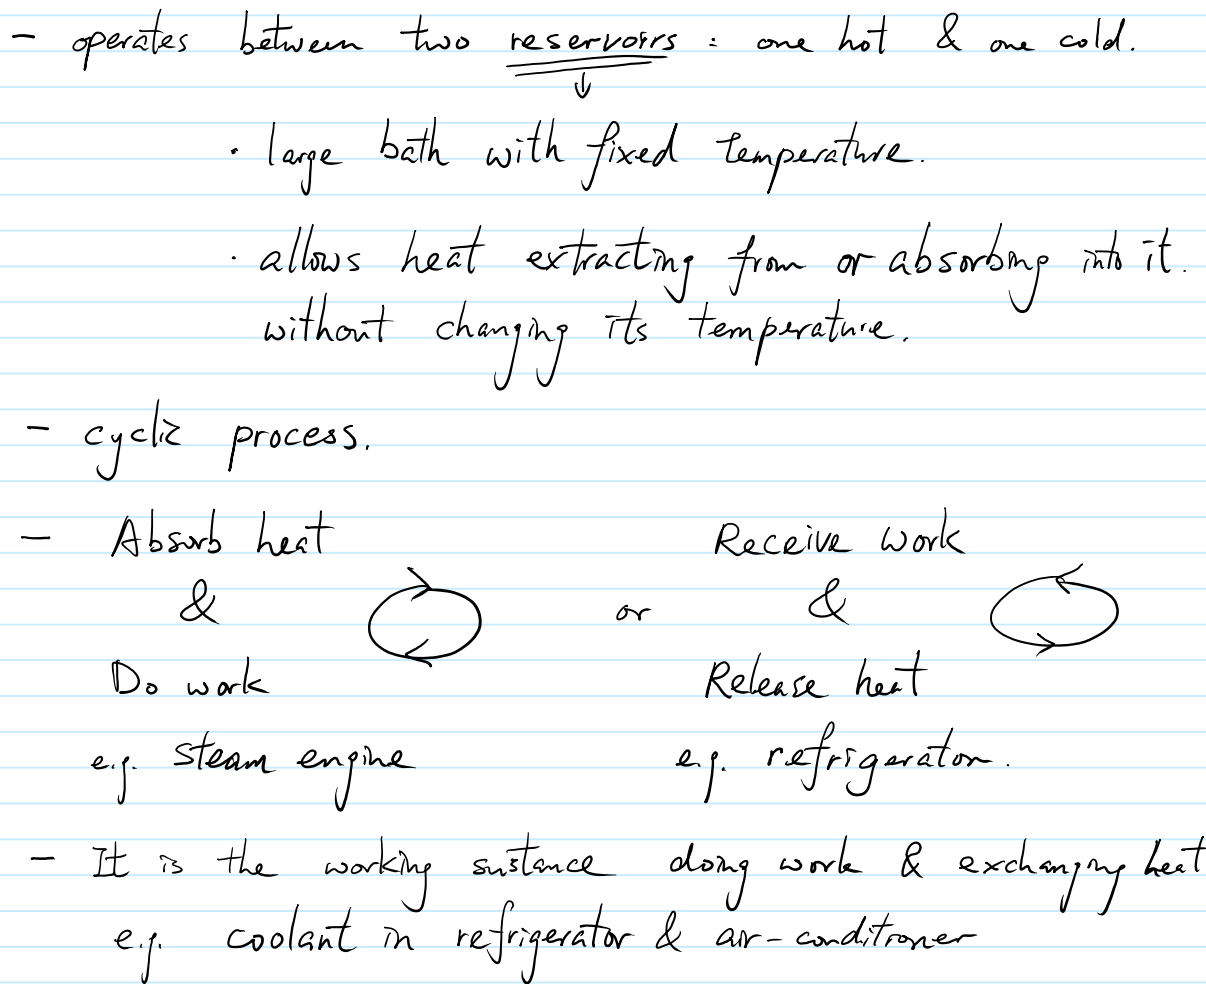 - operates between two reservoirs : one hot & one cold.
↓
· large bath with fixed temperature.
· allows heat extracting from or absorbing into it.
without changing its temperature.
- cyclic process.
- Absorb heat Receive work
& or &
Do work Release heat
e.g. steam engine e.g. refrigerator.
- It is the working sustance doing work & exchanging heat
e.g. coolant in refrigerator & air-conditioner